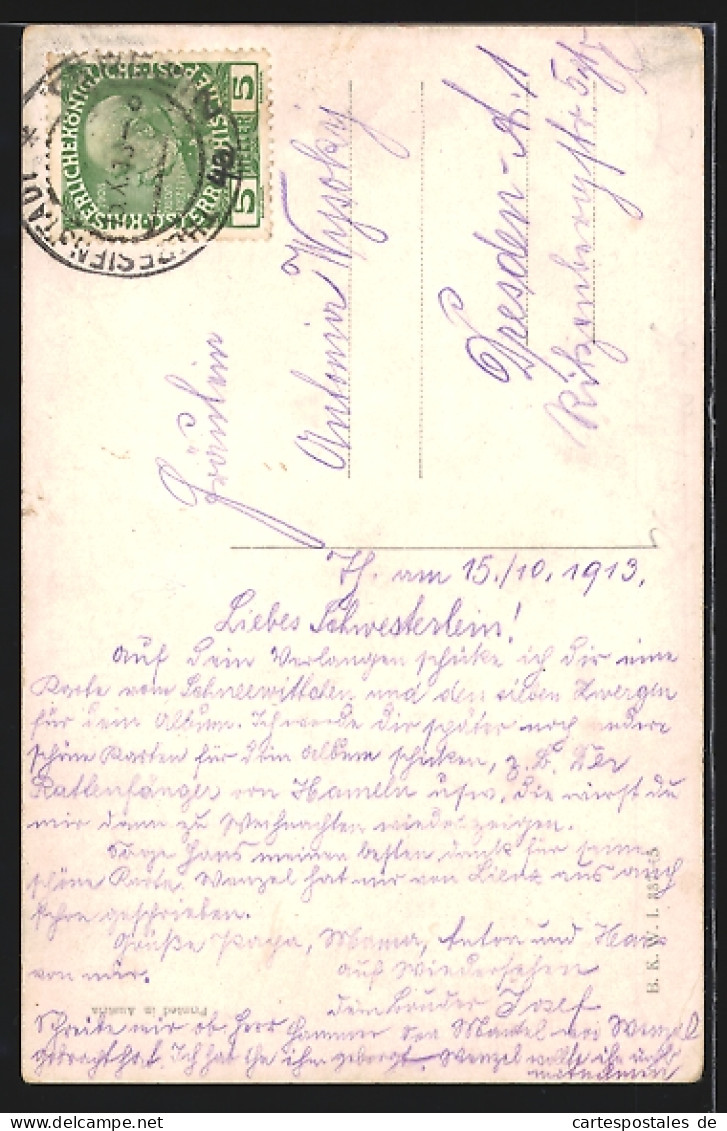 KAISERLICHEKÖNIGLICHE ÖSTERR
5 HELLER 5
THERESIENSTADT
Fräulein
Antonia Wysoky
Dresden-A. 1
Th. am 15./10. 1913.
Liebes Schwesterlein!
Auf Dein Verlangen schicke ich Dir eine
Karte vom Schneewittchen und den sieben Zwergen
für Dein Album. Ich werde Dir später noch andere
schöne Karten für Dein Album schicken, z. B. Der
Rattenfänger von Hameln usw. Die wirst du
mir dann zu Weihnachten wieder zeigen.
Sage Hans meinen besten Dank für seine
schöne Karte. Wenzel hat mir von Lienz aus auch
schon geschrieben.
Grüße Papa, Mama, Anton und Hans
von mir. auf Wiedersehen
Dein Bruder Josef
Schreibe mir ob Herr Hammer den Mantel von Wenzel
gebracht hat. Ich hab ihn ihm geborgt. Wenzel wollte ihn nicht
mitnehmen
Printed in Austria
B. K. W. I.
www.cartespostales.de
cartespostales.de